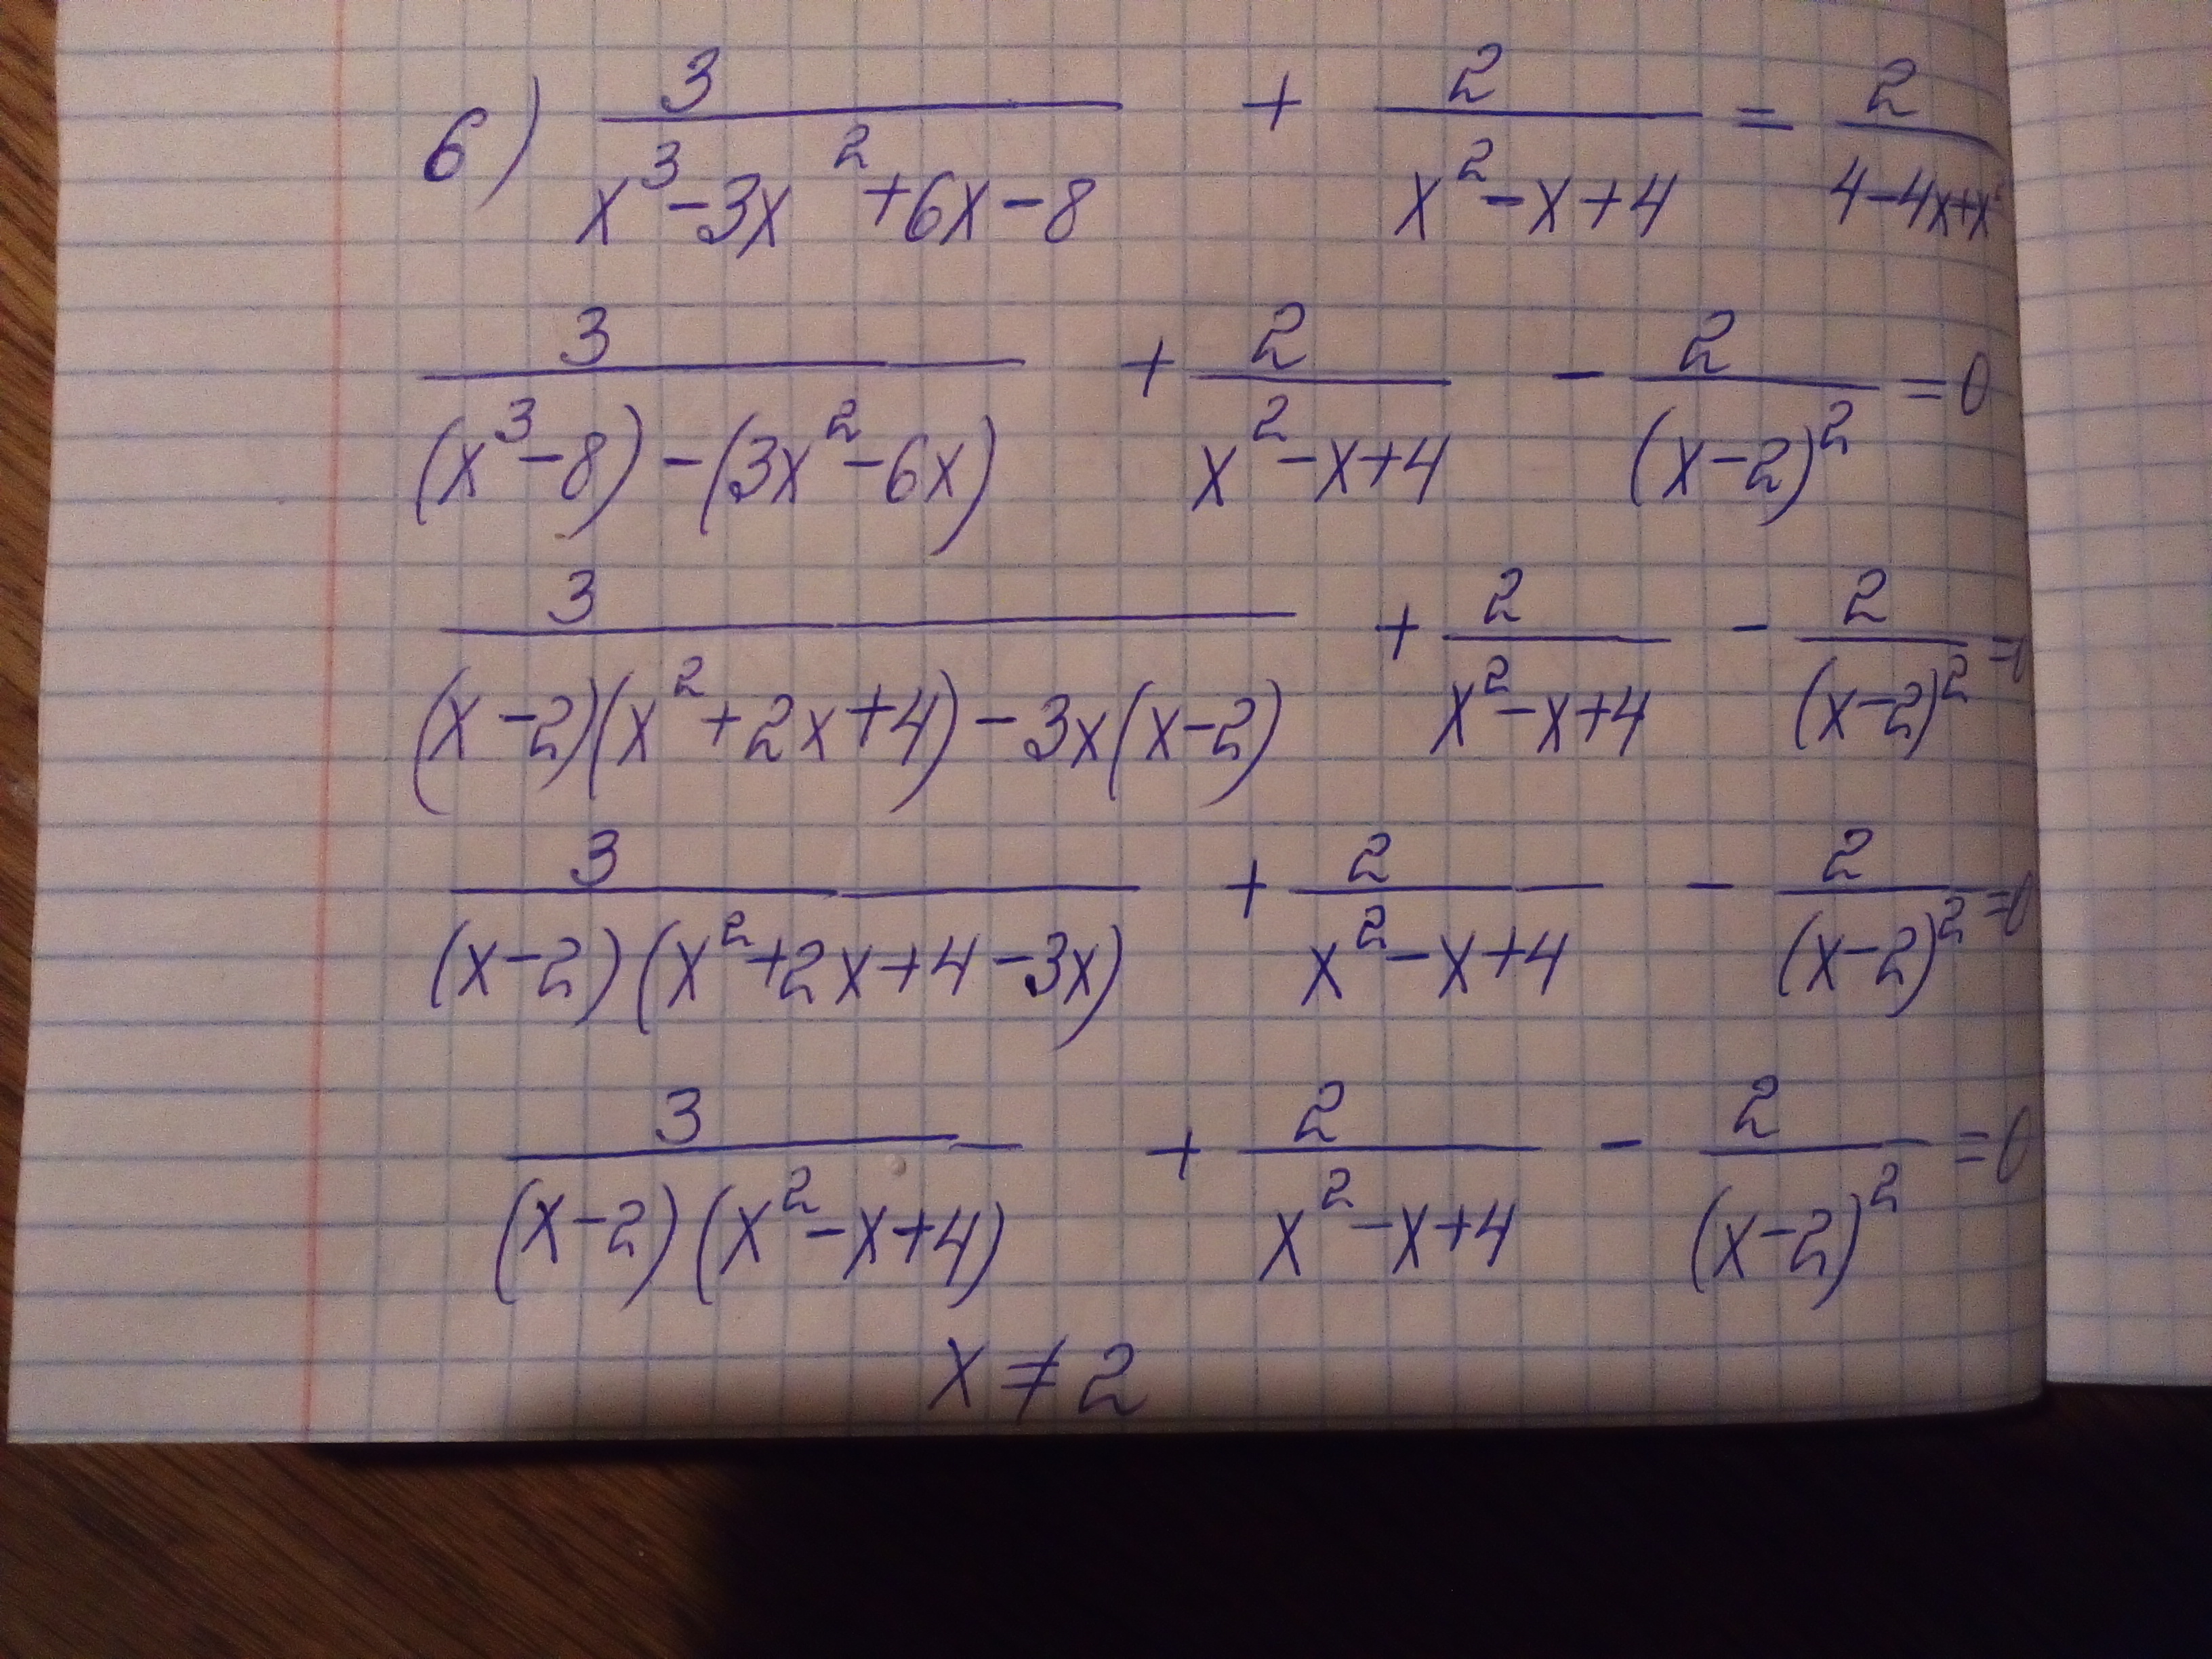 6) 3/(x³-3x²+6x-8) + 2/(x²-x+4) = 2/(4-4x+x²)
3/((x³-8)-(3x²-6x)) + 2/(x²-x+4) - 2/(x-2)² = 0
3/((x-2)(x²+2x+4)-3x(x-2)) + 2/(x²-x+4) - 2/(x-2)² = 0
3/((x-2)(x²+2x+4-3x)) + 2/(x²-x+4) - 2/(x-2)² = 0
3/((x-2)(x²-x+4)) + 2/(x²-x+4) - 2/(x-2)² = 0
x ≠ 2